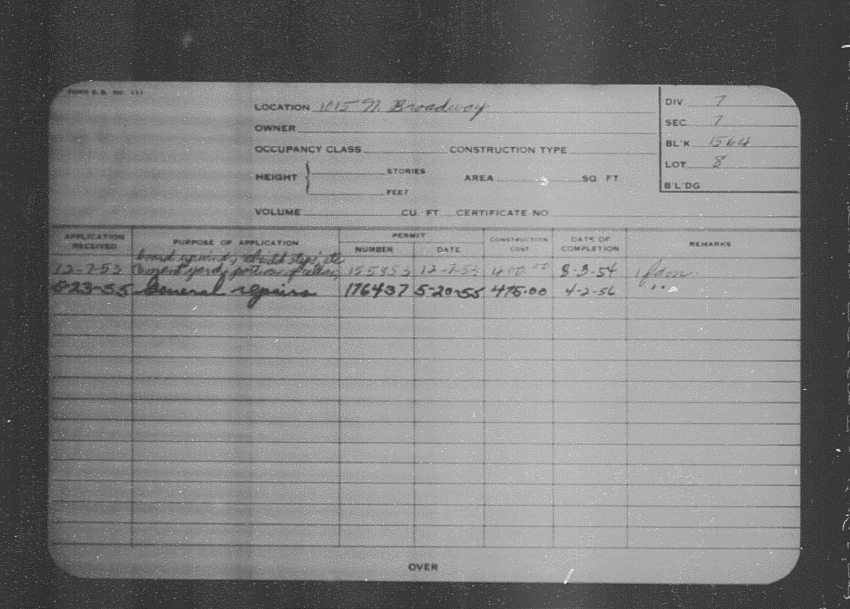 FORM D.B. NO. 111
LOCATION 1815 N. Broadway
OWNER
OCCUPANCY CLASS CONSTRUCTION TYPE
HEIGHT STORIES AREA SQ. FT.
FEET
VOLUME CU. FT. CERTIFICATE NO.
DIV 7
SEC 7
BL'K 1564
LOT 8
B'L'DG
APPLICATION RECEIVED PURPOSE OF APPLICATION PERMIT NUMBER DATE CONSTRUCTION COST DATE OF COMPLETION REMARKS
board up rebuild steps, etc
12-7-53 Cement yard, portions of 155853 12-7-53 400.00 8-3-54 1 fam.
5-23-55 General repairs 176437 5-20-55 475.00 4-2-56 "
OVER